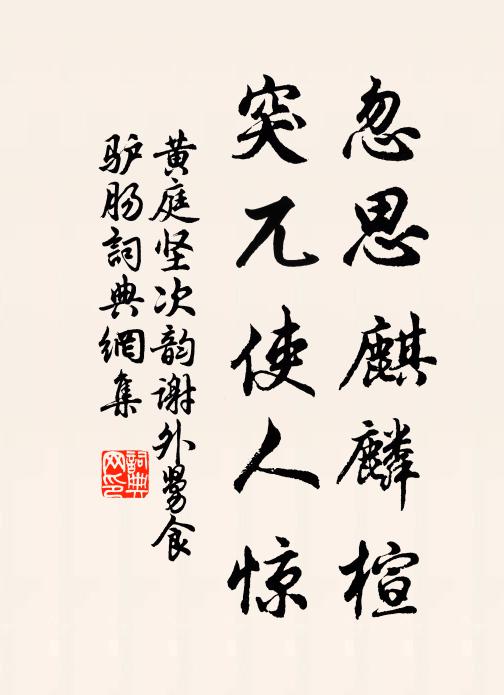 忽思麒麟楦
突兀使人惊
黄庭坚次韵谢外舅食
驴肠詞典網集
詞典网印